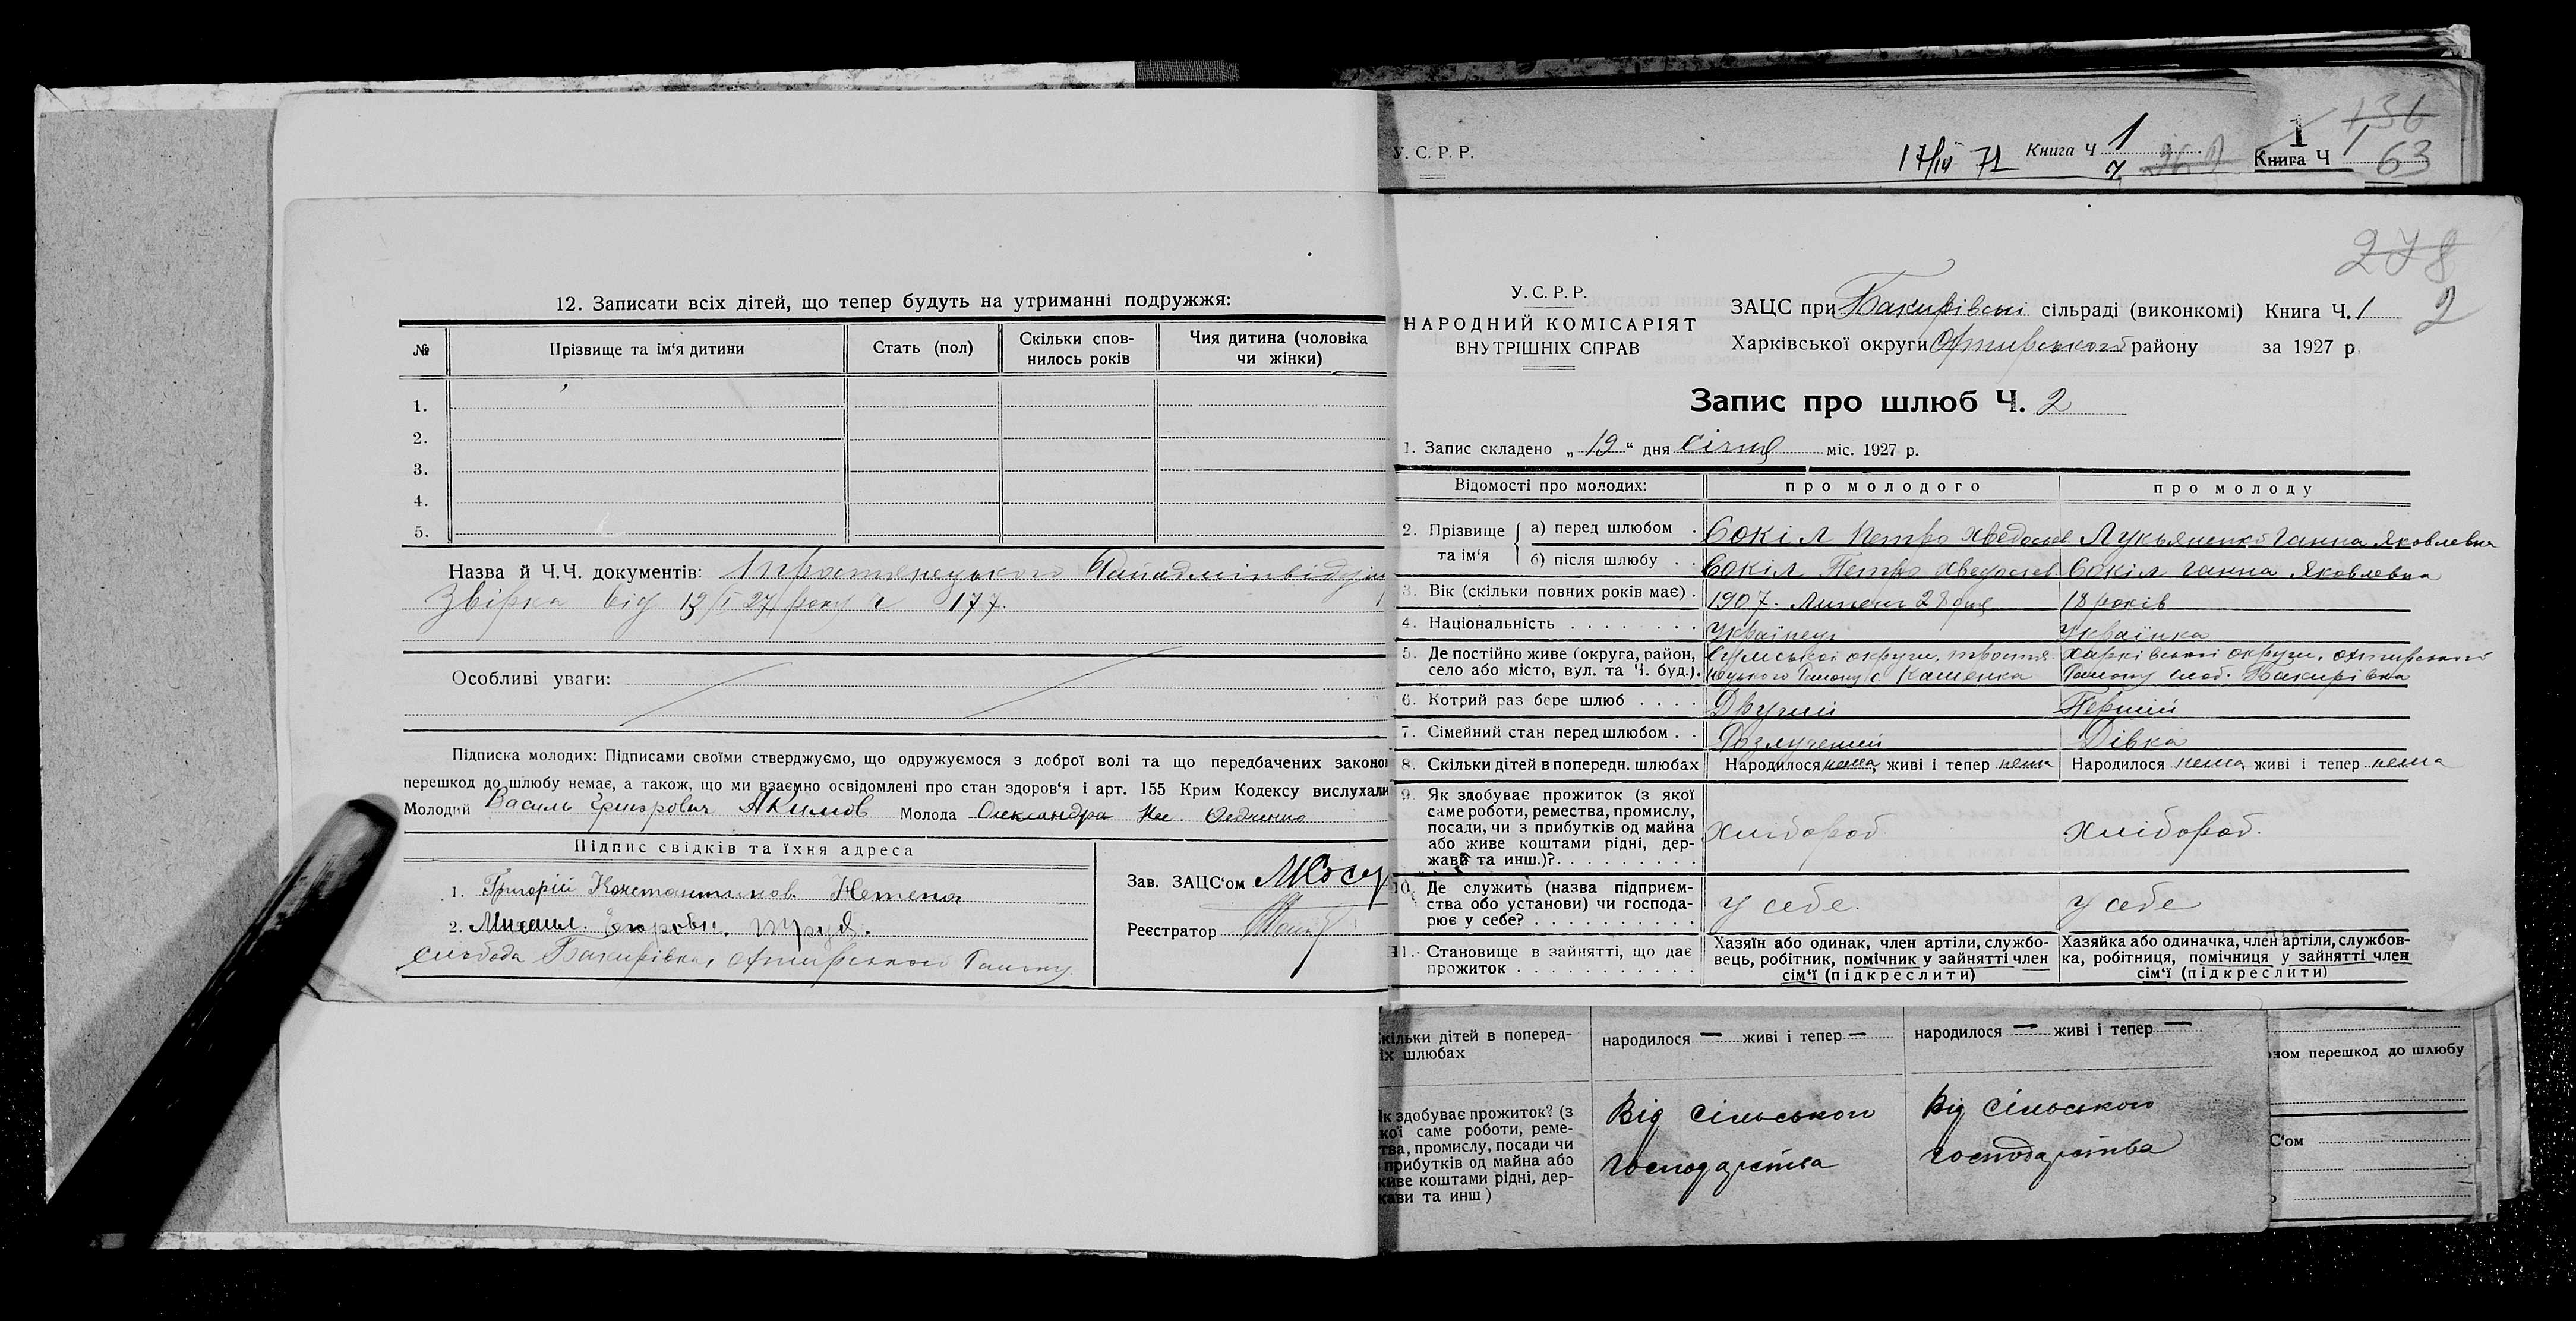 12. Записати всіх дітей, що тепер будуть на утриманні подружжя:
№ Прізвище та ім'я дитини Стать (пол) Скільки спов-нилось років Чия дитина (чоловіка чи жінки)
1.
2.
3.
4.
5.
Назва й Ч.Ч. документів: Тростянецького Райадмінвідділу
Звірка від 13/I 27 року № 177.
Особливі уваги:
Підписка молодих: Підписами своїми стверджуємо, що одружуємося з доброї волі та що передбачених законо
перешкод до шлюбу немає, а також, що ми взаємно освідомлені про стан здоров'я і арт. 155 Крим Кодексу вислухали
Молодий Василь Григорович Акимов Молода Олександра
Підпис свідків та їхня адреса
1. Григорій Константинов.
2. Михаил.
слобода Бакирівка, Охтирського Району
Зав. ЗАЦС'ом
Реєстратор
У. С. Р. Р.
17/IV 71 Книга Ч 1
1 136
Книга Ч 1 63
278
2
У. С. Р. Р.
НАРОДНИЙ КОМІСАРІЯТ
ВНУТРІШНІХ СПРАВ
ЗАЦС при Бакирівські сільраді (виконкомі) Книга Ч. 1
Харківської округи Охтирського району за 1927 р
Запис про шлюб Ч. 2
1. Запис складено „19" дня січня міс. 1927 р.
Відомості про молодих: про молодого про молоду
2. Прізвище та ім'я а) перед шлюбом Сокіл Петро Хведосьев Лукьяненко Ганна Яковлевна
б) після шлюбу Сокіл Петро Хведосьев Сокіл Ганна Яковлевна
3. Вік (скільки повних років має) 1907. Липня 28 дня 18 років
4. Національність Українець Українка
5. Де постійно живе (округа, район, Сумської округи, тростя Харківської округи, Охтирського
село або місто, вул. та Ч. буд.). нецького Району с. Каменка Району слоб. Бакирівка
6. Котрий раз бере шлюб Другий Перший
7. Сімейний стан перед шлюбом Розлучений Дівка
8. Скільки дітей в попередн. шлюбах Народилося нема, живі і тепер нема Народилося нема, живі і тепер нема
9. Як здобуває прожиток (з якої
саме роботи, ремества, промислу,
посади, чи з прибутків од майна
або живе коштами рідні, дер-
жави та инш.)? Хлібороб Хлібороб.
10. Де служить (назва підприєм-
ства обо установи) чи господа-
рює у себе? у себе. у себе
11. Становище в зайнятті, що дає
прожиток
Хазяїн або одинак, член артіли, службо-
вець, робітник, помічник у зайнятті член
сім'ї (підкреслити)
Хазяйка або одиначка, член артіли, службов-
ка, робітниця, помічниця у зайнятті член
сім'ї (підкреслити)
кільки дітей в поперед-
іх шлюбах
народилося — живі і тепер — народилося — живі і тепер —
ном перешкод до шлюбу
як здобуває прожиток? (з
кої саме роботи, реме-
тва, промислу, посади чи
прибутків од майна або
живе коштами рідні, дер-
жави та инш)
Від сільського
господарства
Від сільського
господарства
С'ом